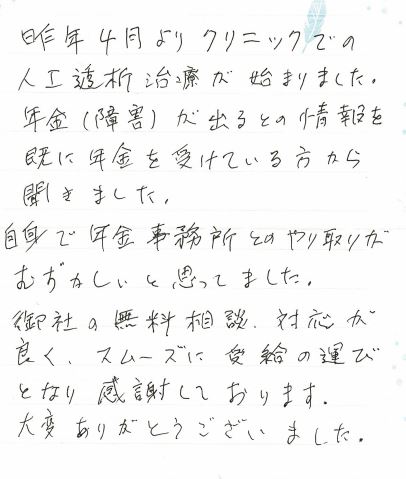 昨年4月よりクリニックでの
人工透析治療が始まりました。
年金(障害)が出るとの情報を
既に年金を受けている方から
聞きました。
自身で年金事務所とのやり取りが
むずかしいと思ってました。
御社の無料相談、対応が
良く、スムーズに受給の運び
となり感謝しております。
大変ありがとうございました。